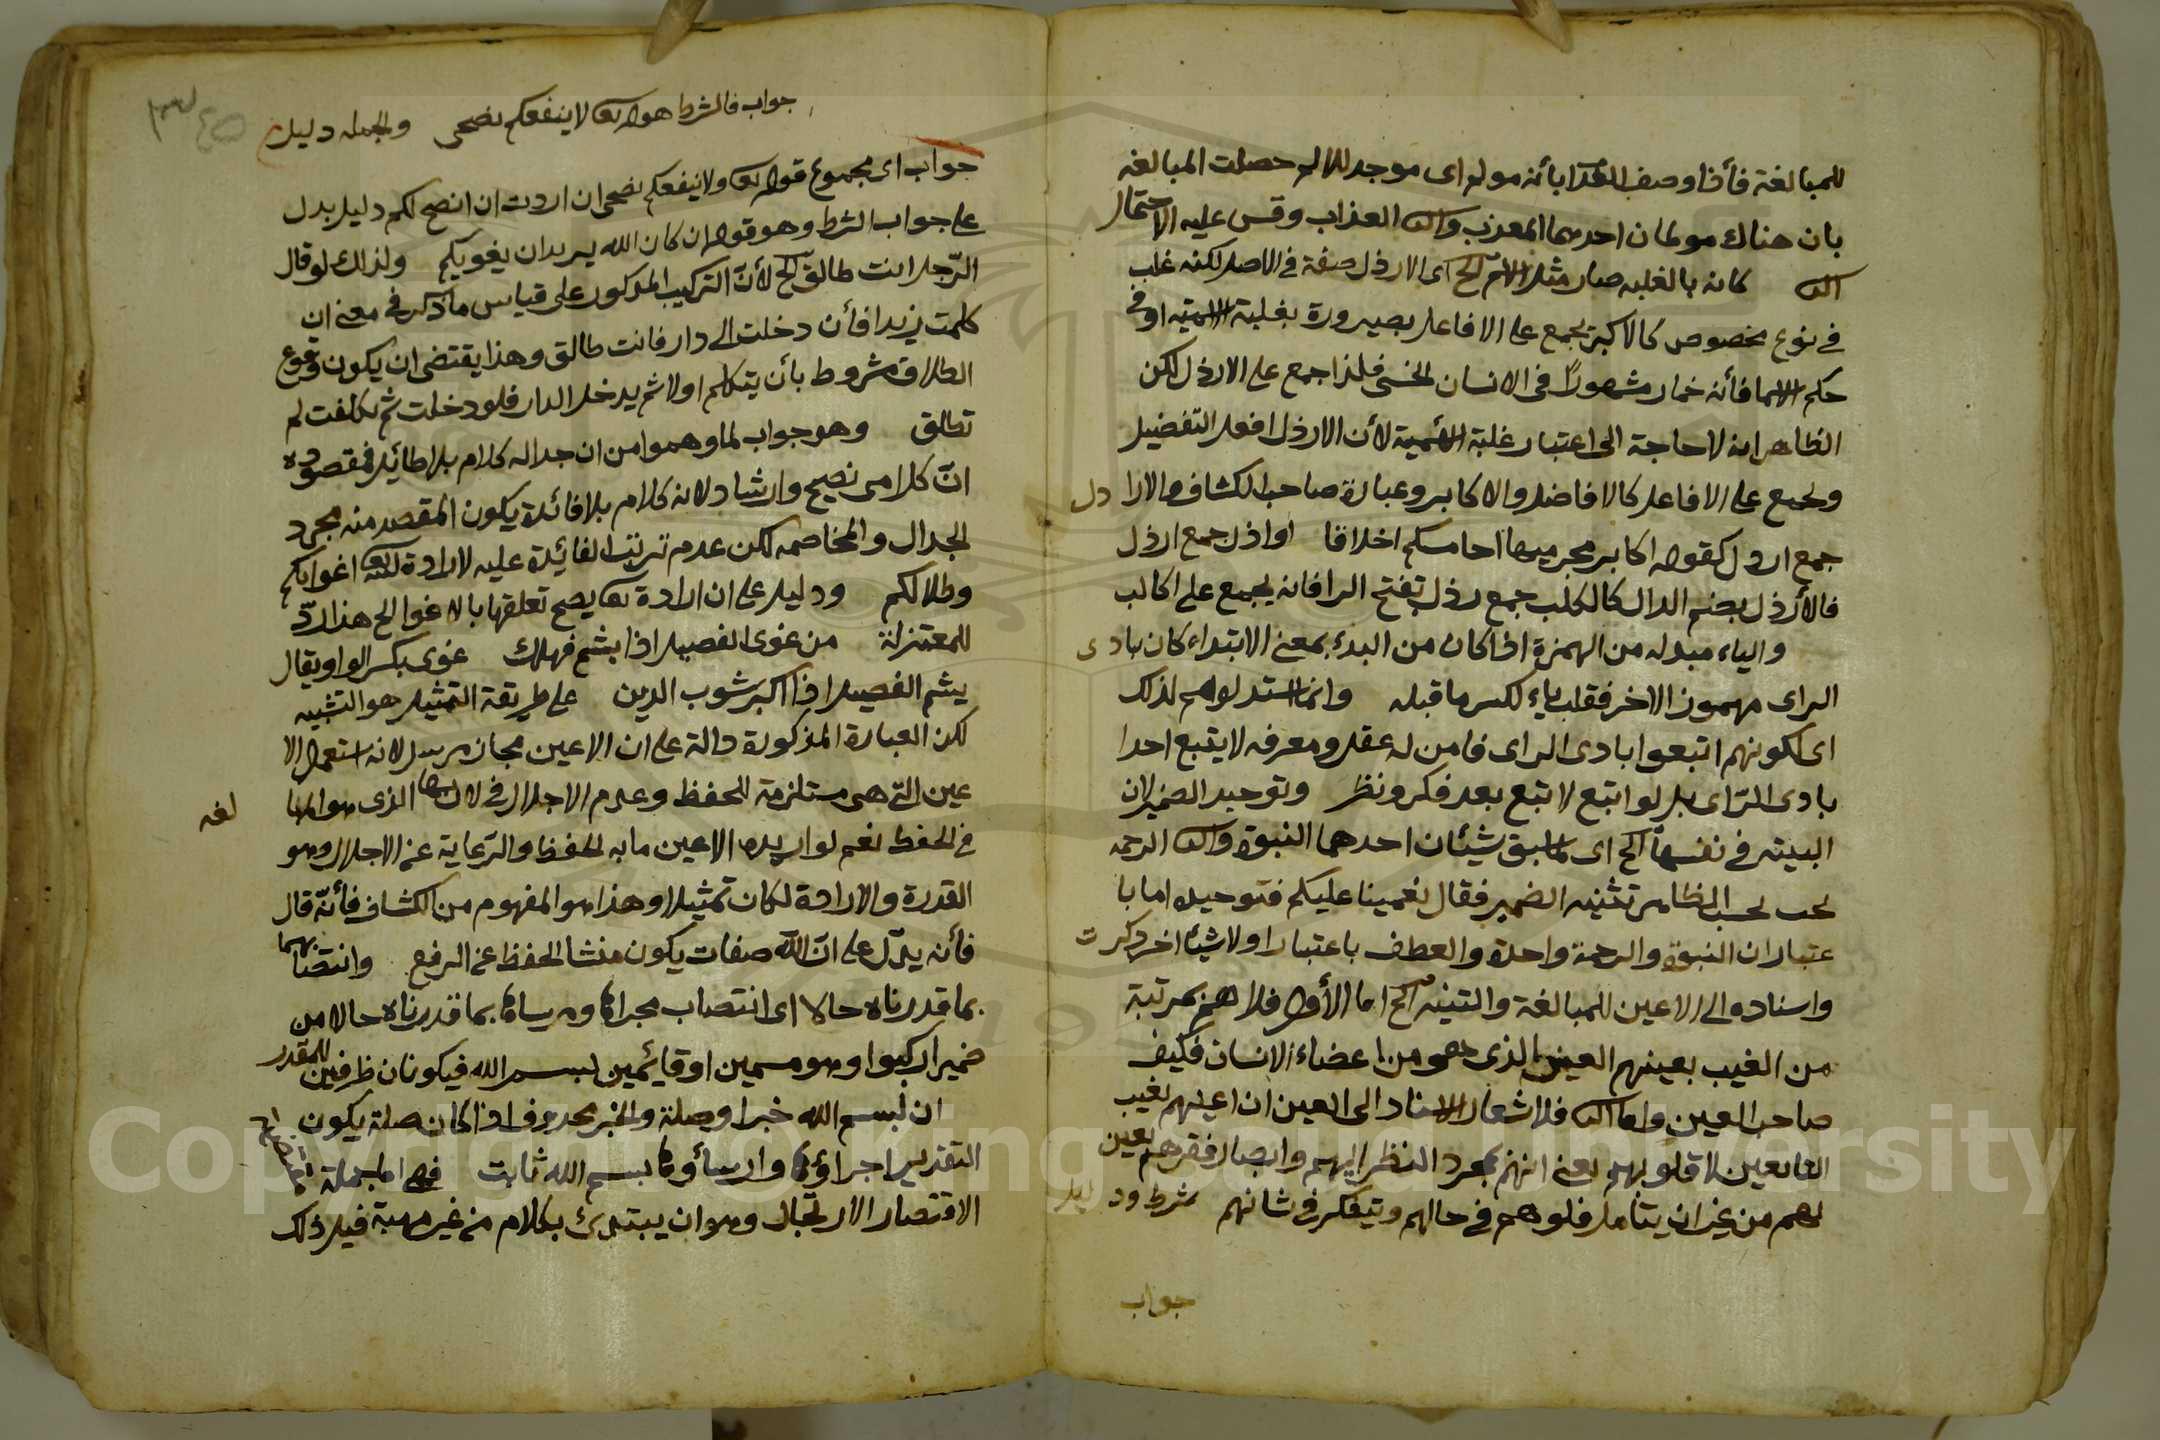 للمبالغة فأذا وصف العذاب بأنه مولم اى موجد للالم حصلت المبالغة
بان هناك مولمان احدهما المعذب والثانى العذاب وقس عليه الاحتمال
الثانى كانه بالغلبه صار مثل الاسم الخ اى الارذل صفة فى الاصل لكنه غلب
فى نوع مخصوص كالاكبر يجمع على الافاعل بصيرورة بغلبة الاسمية او فى
حكم الاسماء فأنه خمار مشهورًا فى الانسان الخسى فلذا جمع على الارذل لكن
الظاهر انه لا حاجة الى اعتبار غلبة الاسمية لأن الارذل افعل التفضيل
ولجمع على الافاعل كالافاضل والاكابر وعبارة صاحب الكشاف والاراذل
جمع ارذل كقوله اكابر مجرميها احاسنكم اخلاقا او اذل جمع ارذل
فالأرذل بضم الدال كالكلب جمع رذل بفتح الرا فانه يجمع على اكالب
والياء مبدله من الهمزة اذا كان من البدء بمعنى الابتداء كان بادى
الراى مهموز الاخر فقلب ياء لكسر ما قبله وانما استرذلوهم لذلك
اى لكونهم اتبعوا بادى الراى فامن له عقل ومعرفه لا يتبع احدا
بادى الرّاى بل لو اتبع لاتبع بعد فكر ونظر وتوحيد الضمير لان
البينه فى نفسها الخ اى لما سبق شيئان احدهما النبوة والثانى الرحمة
يجب بحسب الظاهر تثنيه الضمير فقال فعمينا عليكم فتوحيده اما با
عتبار ان النبوة والرحمة واحدة والعطف باعتبار اولا شيئا اخر ذكرت
واسناده الى الاعين للمبالغة والتنبيه الخ اما الأول فلاهم بمرتبة
من الغيب بعينهم العين الذى هو من اعضاء الانسان فكيف
صاحب العين واما الثانى فلا شعار الاسناد الى العين ان اعينهم لغيب
العابعين لا قلوبهم يعنى انهم بمجرد النظر اليهم وابصار فقرهم بعين
لهم من غير ان يتامل فلوهم فى حالهم ويتفكر فى شانهم شرط ودليل
جواب
جواب فالشرط هو ان لا ينفعكم نصحى والجمله دليل
جواب اى مجموع قوله تعالى ولا ينفعكم نصحى ان اردت ان انصح لكم دليل بدل
على جواب الشرط وهو قوله ان كان الله يريد ان يغويكم ولذلك لو قال
الرّجل انت طالق الخ لأنّ التركيب المذكور على قياس ما ذكر فى معنى ان
كلمت زيدا فأن دخلت الدار فانت طالق وهذا يقتضى ان يكون وقوع
الطلاق مشروط بأن يتكلم اولا ثم يدخل الدار فلو دخلت ثم تكلمت لم
تطالق وهو جواب لما وهموا من ان جداله كلام بلا طائل فمقصوده
انّ كلامى نصيح وارشاد لانه كلام بلا فائدة يكون المقصد منه مجرد
الجدال والمخاصمه لكن عدم ترتب الفائدة عليه لارادة الله اغوائكم
وطلالكم ودليل على ان ارادة الله يصح تعلقها بالاغوا الخ هذا ردّ
للمعتزلة من غوى الفصيل اذا بشم فهلك غوى بكسر الواو يقال
بشم الفصيل اذا اكبر شوب الدين على طريقة التمثيل هو التشبيه
لكن العبارة المذكورة دالة على ان الاعين مجاز مرسل لانه استعمل الا
عين التى هى مستلزمة للحفظ وعدم الاجلال فى لازمها الذى هو المبا لغه
فى الحفظ نعم لو اريد بالاعين ما به الحفظ والرّعاية عن الاجلال وهو
القدرة والارادة لكان تمثيلا وهذا هو المفهوم من الكشاف فأنّه قال
فأنه يدلّ على انّ لله صفات يكون منشا الحفظ عن الرفع وانتصابهما
بما قدرناه حالا اى انتصاب مجراها ومرساها بما قدرناه حالا من
ضمير اركبوا وهو مسمين او قائمين بسم الله فيكونان ظرفين للمقدر
ان بسم الله خبرا وصلة والخبر محذوف اذا كان صلة يكون
التقدير اجراؤها وارساؤها بسم الله ثابت فهى المجملة
الاقتصار الارتجال وهو ان يبتدئ بكلام من غير مهية قبل ذلك